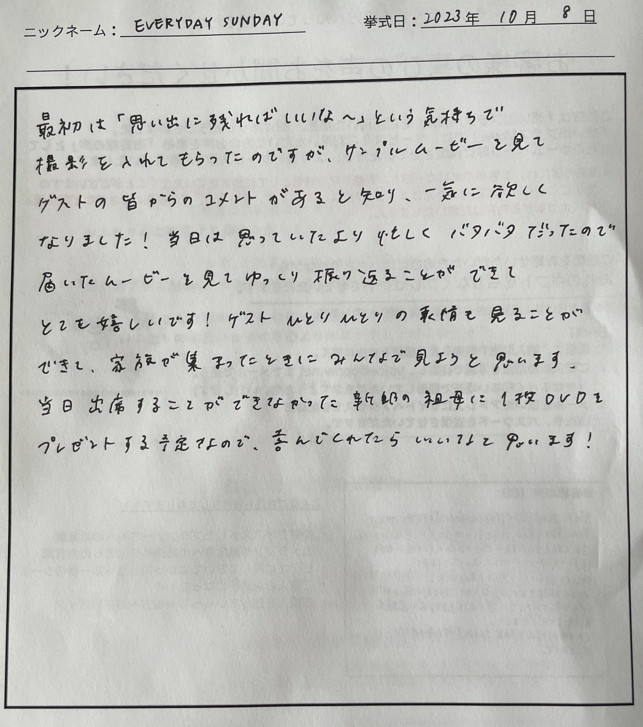 ニックネーム: EVERYDAY SUNDAY 挙式日: 2023年 10月 8日
最初は「思い出に残ればいいな〜」という気持ちで
撮影を入れてもらったのですが、サンプルムービーを見て
ゲストの皆からのコメントがあると知り、一気に欲しく
なりました! 当日は思っていたより忙しく バタバタだったので
届いたムービーを見てゆっくり振り返ることができて
とても嬉しいです! ゲストひとりひとりの表情も見ることが
できて、家族が集まったときにみんなで見ようと思います。
当日出席することができなかった新郎の祖母に1枚DVDを
プレゼントする予定なので、喜んでくれたらいいなと思います!